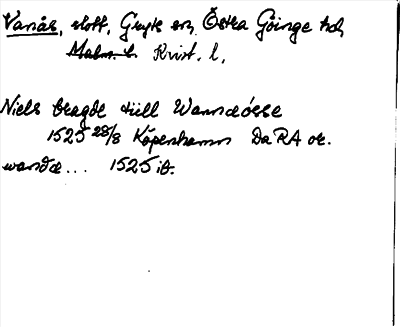 Vanås, slott, Gryts sn, Östra Göinge hd
Malm. l. Krist. l,
Niels bragde till Wannaósse
1525 28/8 Köpenhamn DaRA or.
wandæ... 1525 ib.